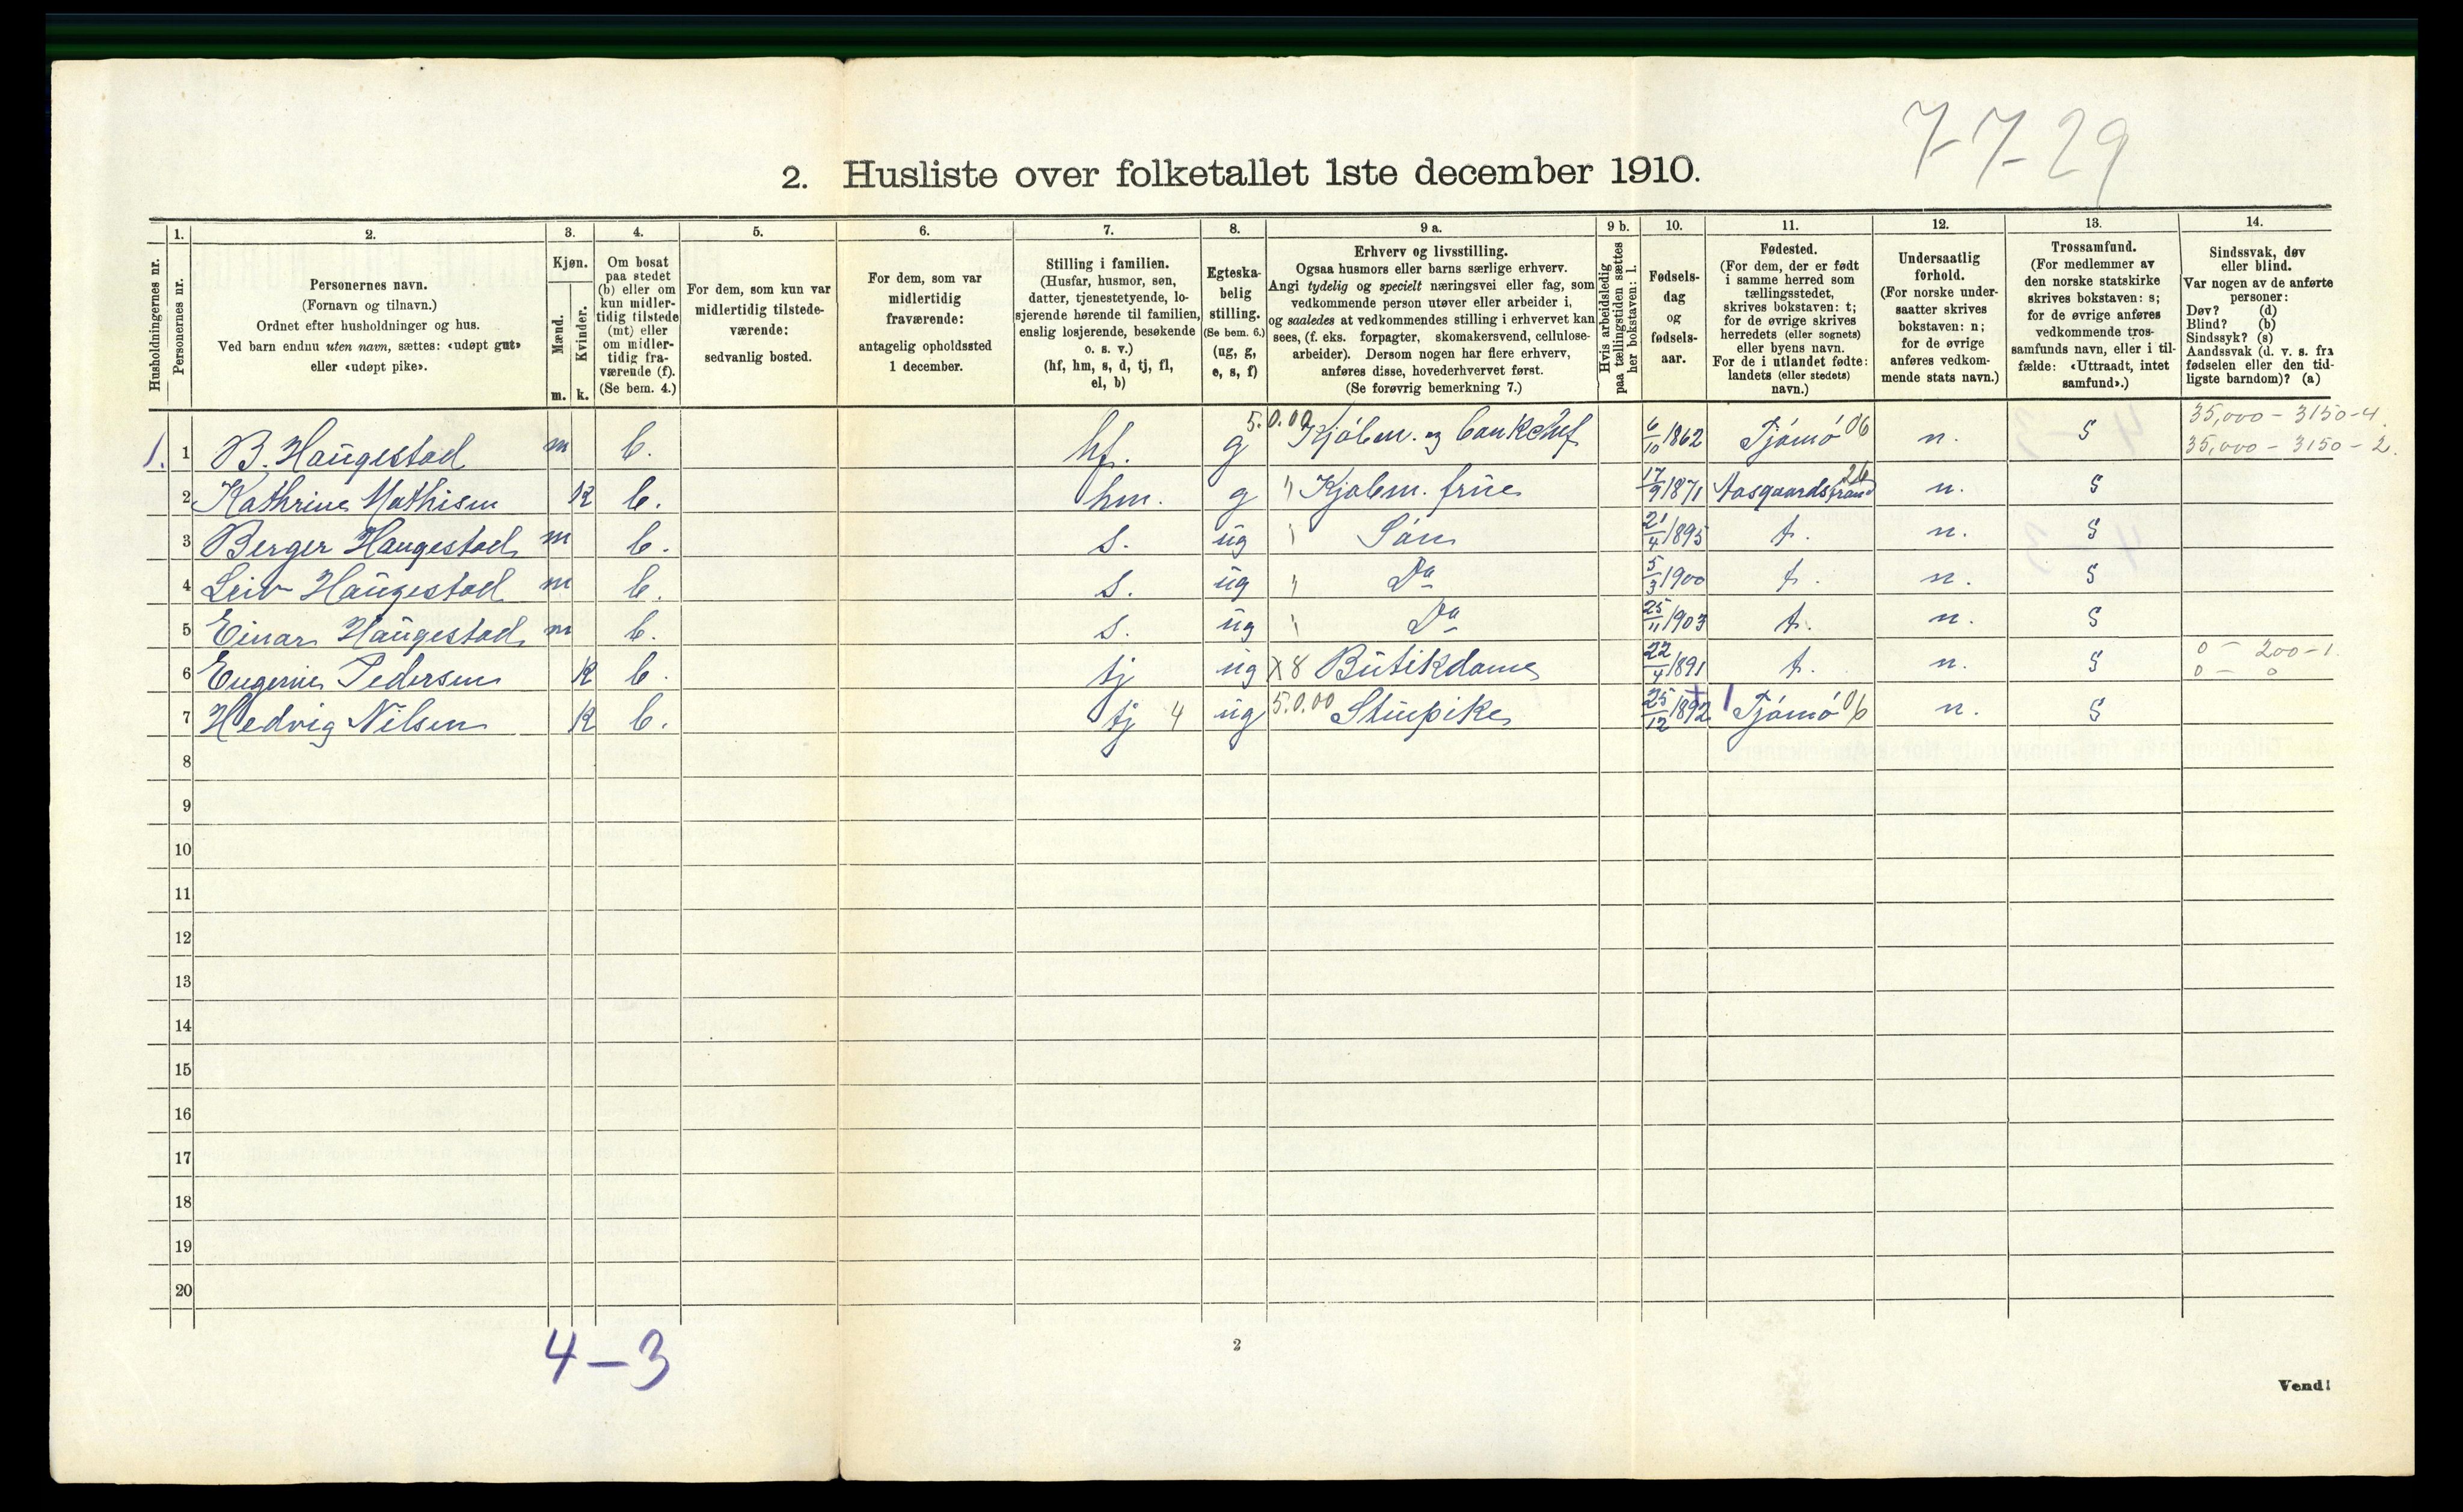 7-7-29
2. Husliste over folketallet 1ste december 1910.
Husholdningernes nr.
1.
Personernes nr.
2.
Personernes navn.
(Fornavn og tilnavn.)
Ordnet efter husholdninger og hus.
Ved barn endnu uten navn, sættes: «udøpt gut»
eller «udøpt pike».
3.
Kjøn.
Mænd.
Kvinder.
m. k.
4.
Om bosat
paa stedet
(b) eller om
kun midler-
tidig tilstede
(mt) eller
om midler-
tidig fra-
værende (f).
(Se bem. 4.)
5.
For dem, som kun var
midlertidig tilstede-
værende:
sedvanlig bosted.
6.
For dem, som var
midlertidig
fraværende:
antagelig opholdssted
1 december.
7.
Stilling i familien.
(Husfar, husmor, søn,
datter, tjenestetyende, lo-
sjerende hørende til familien,
enslig losjerende, besøkende
o. s. v.)
(hf, hm, s, d, tj, fl,
el, b)
8.
Egteska-
belig
stilling.
(Se bem. 6.)
(ug, g,
e, s, f)
9 a.
Erhverv og livsstilling.
Ogsaa husmors eller barns særlige erhverv.
Angi tydelig og specielt næringsvei eller fag, som
vedkommende person utøver eller arbeider i,
og saaledes at vedkommendes stilling i erhvervet kan
sees, (f. eks. forpagter, skomakersvend, cellulose-
arbeider). Dersom nogen har flere erhverv,
anføres disse, hovederhvervet først.
(Se forøvrig bemerkning 7.)
9 b.
Hvis arbeidsledig
paa tællingstiden sættes
her bokstaven: l.
10.
Fødsels-
dag
og
fødsels-
aar.
11.
Fødested.
(For dem, der er født
i samme herred som
tællingsstedet,
skrives bokstaven: t;
for de øvrige skrives
herredets (eller sognets)
eller byens navn.
For de i utlandet fødte:
landets (eller stedets)
navn.)
12.
Undersaatlig
forhold.
(For norske under-
saatter skrives
bokstaven: n;
for de øvrige
anføres vedkom-
mende stats navn.)
13.
Trossamfund.
(For medlemmer av
den norske statskirke
skrives bokstaven: s;
for de øvrige anføres
vedkommende tros-
samfunds navn, eller i til-
fælde: «Uttraadt, intet
samfund».)
14.
Sindssvak, døv
eller blind.
Var nogen av de anførte
personer:
Døv? (d)
Blind? (b)
Sindssyk? (s)
Aandssvak (d. v. s. fra
fødselen eller den tid-
ligste barndom)? (a)
1. 1 B. Haugestad m b. hf. g 5.0.00 Kjøbm. og bankchef 6/10 1862 Tjømø 06 n. S 35,000 - 3150-4.
35,000 - 3150 - 2.
2 Kathrine Mathisen k b. hm. g " Kjøbm. frue 17/9 1871 Aasgaardstrand 26 n. S
3 Berger Haugestad m b. s. ug " Søn 21/4 1895 t. n. S
4 Leiv Haugestad m b. s. ug " Do 5/3 1900 t. n. S
5 Einar Haugestad m b. s. ug " Do 25/11 1903 t. n. S
6 Eugenie Pedersen k b. tj ug x8 Butikdame 22/4 1891 t. n. S 0 - 200-1.
0 - 0
7 Hedvig Nilsen k b. tj 4 ug 5.0.00 Stuepike 25/12 1892 Tjømø 06 n. S
8
9
10
11
12
13
14
15
16
17
18
19
20
4-3
2
Vend!